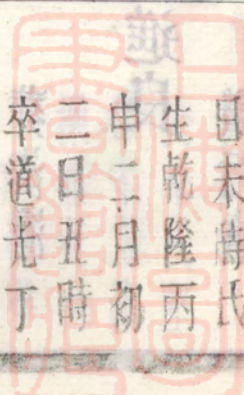 日未時氏
生乾隆丙
申二月初
二日丑時
卒道光丁